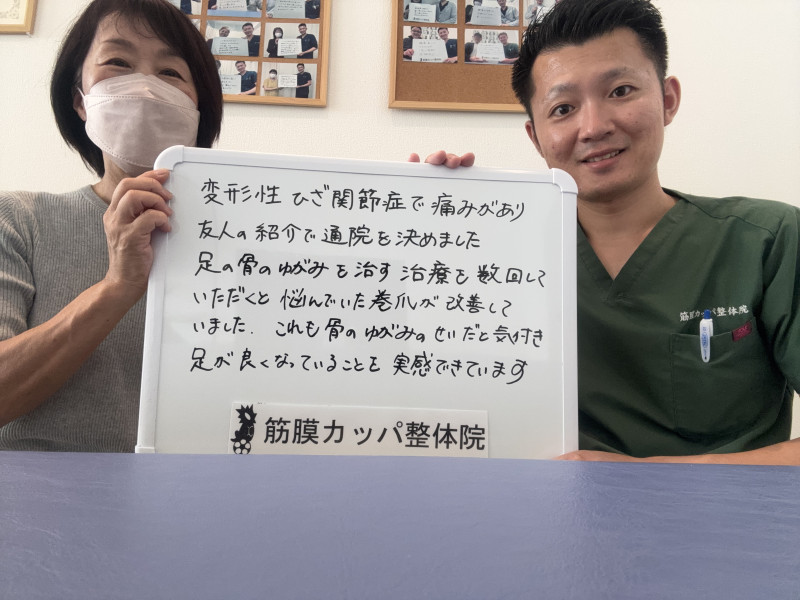 変形性 ひざ関節症で 痛みがあり
友人の紹介で通院を決めました
足の骨のゆがみを治す治療を数回して
いただくと 悩んでいた巻爪が改善して
いました. これも骨のゆがみのせいだと気付き
足が良くなっていることを実感できています
筋膜カッパ整体院
筋膜カッパ整体院